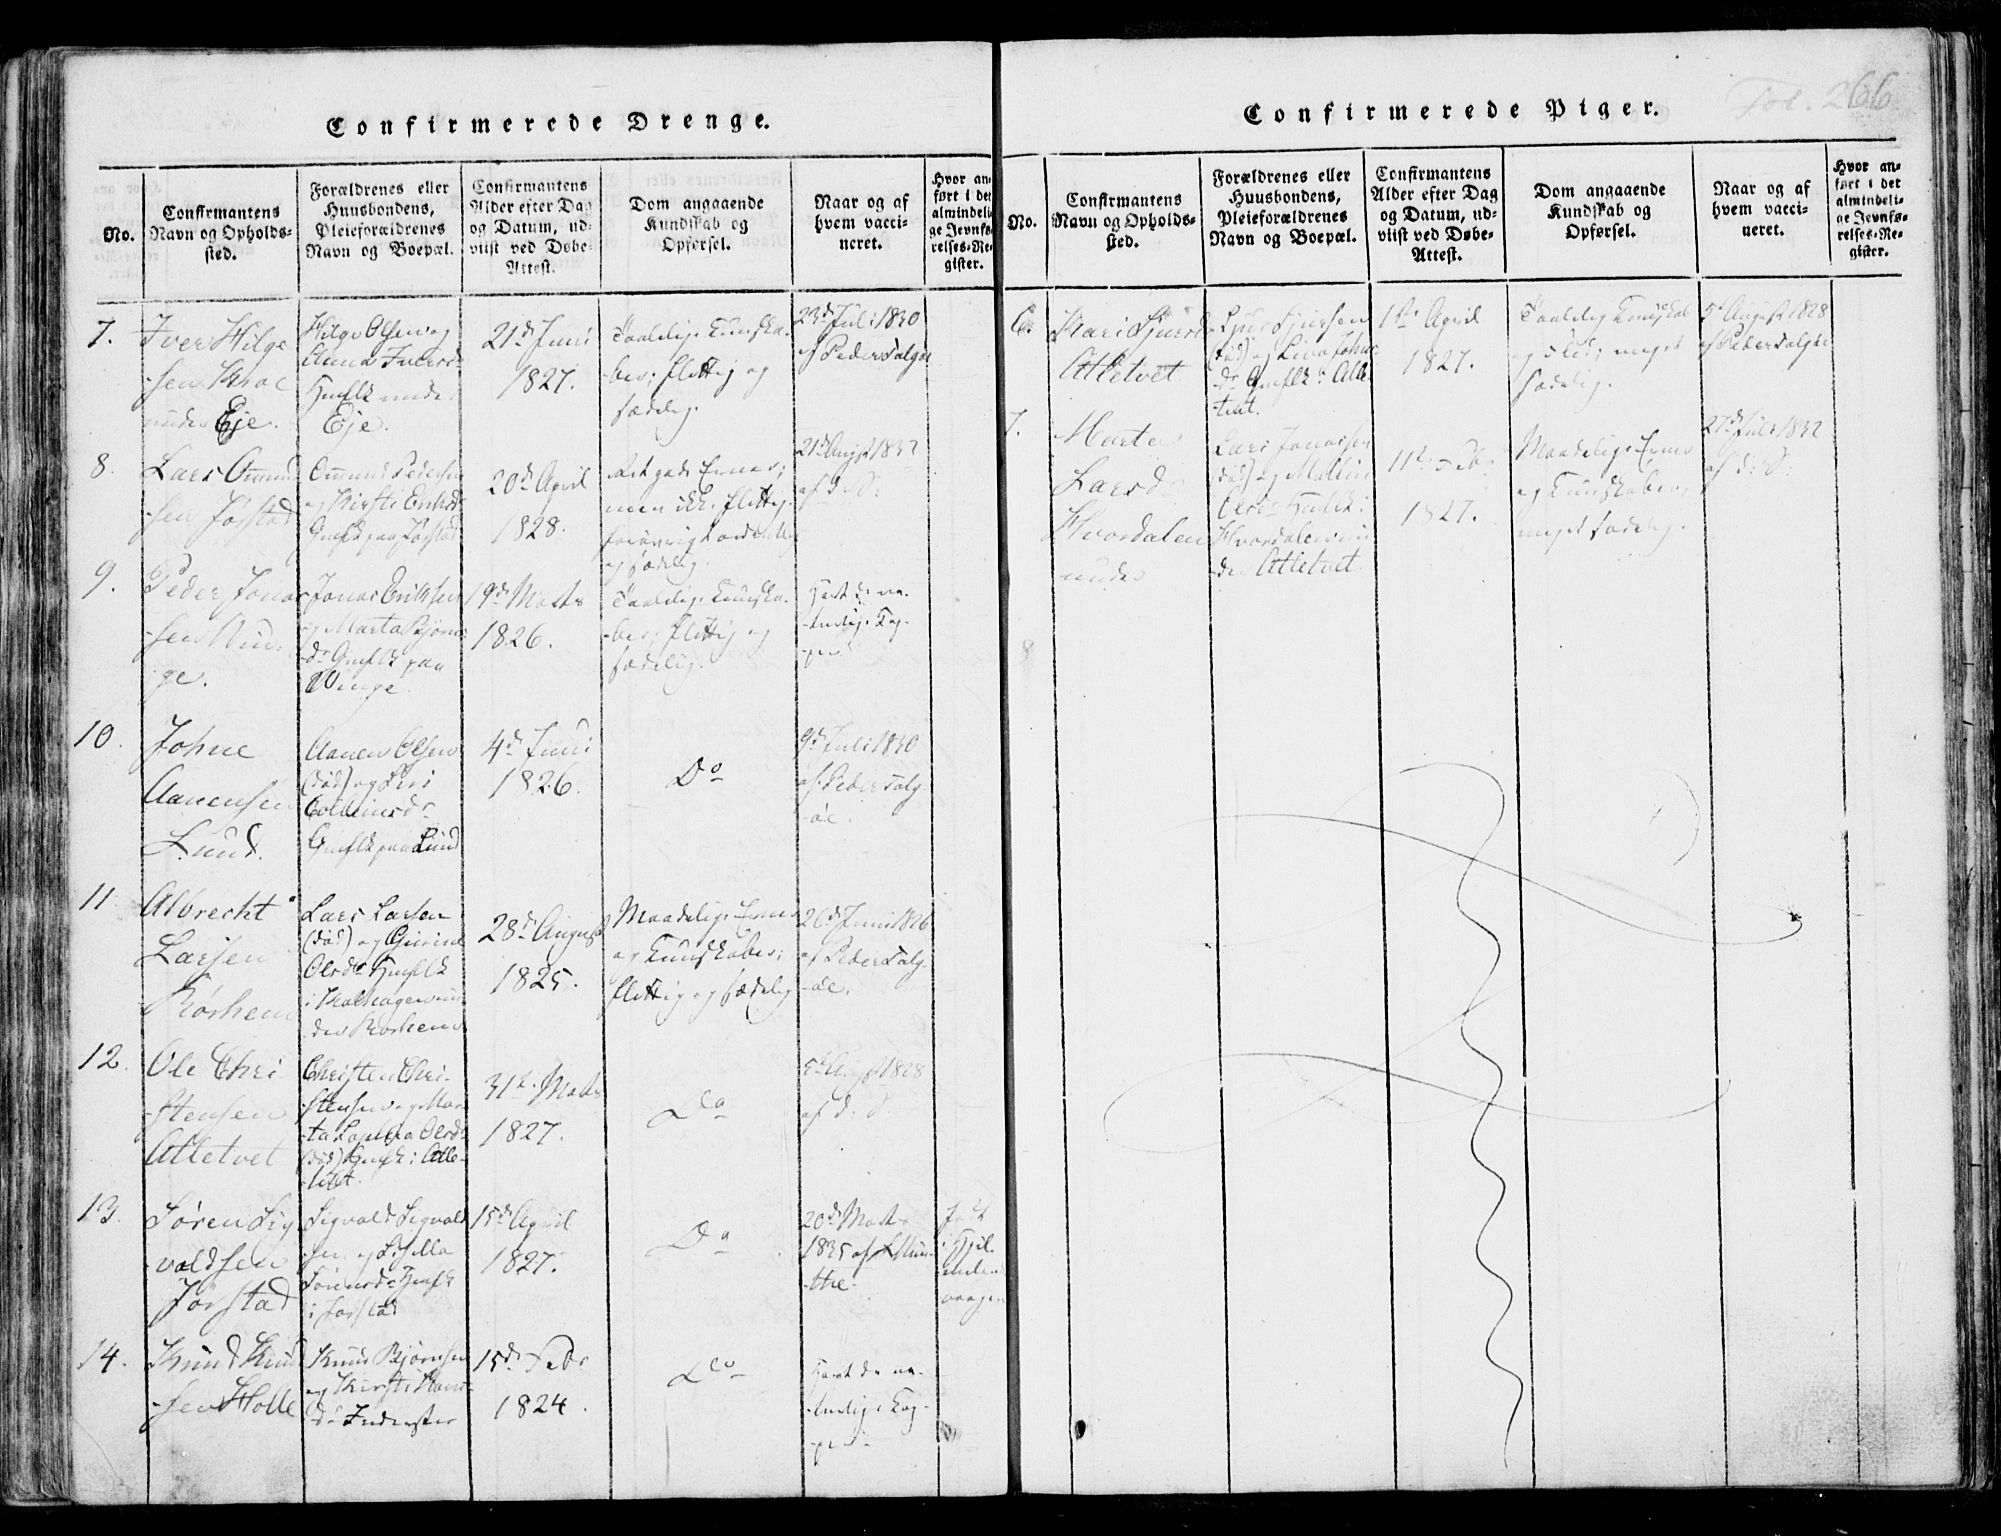 Fol. 266
Confirmerede Drenge.
No.
Confirmantens
Navn og Opholds-
sted.
Forældrenes eller
Huusbondens,
Pleieforældrenes
Navn og Boepæl.
Confirmantens
Alder efter Dag
og Datum, ud-
viist ved Døbe-
Attest.
Dom angaaende
Kundskab og
Opførsel.
Naar og af
hvem vacci-
neret.
Hvor an-
ført i det
almindeli-
ge Jevnfø-
relses-Re-
gister.
7.
Iver Hilge
-sen
under Eje.
Hilge Olsen og
Anna Ivers-
Hmflk under
Eje.
21d Juni
1827.
Taalelige Kundska-
ber; flittig og
sædelig.
23d Juli 1830
af Peder Salgøe
8.
Lars Omund
-sen Jøstad
Omund Pedersen
og Kirsti Eriksd
Gmflk paa Jøstad
20d April
1828.
Ret gode Evner;
men ikke flittig,
forøvrigt ordentlig
og sædelig.
21d Augst 1837
af d. S.
9.
Peder Jonas
-sen Win-
ge.
Jonas Eriksen
og Marta Bjørns
dr Gmflk paa
Winge.
19d Marts
1826.
Taalelige Kundska-
ber; flittig og
sædelig.
Havt de na-
turlige Kop-
per
10.
Johne
Aanensen
Lund.
Aanen Olsen
(død) og Siri
Tolleivsdr
Gmflk paa Lund
4d Juni
1826.
Do
9d Juli 1830
af Peder Salg-
øe.
11.
Albrecht
Larsen
Rørheim
Lars Larsen
(død) og Gurine
Olsdr Hmflk
i Kalhagen un-
der Rørheim
28d August
1825.
Maadelige Evner
og Kundskaber;
flittig og sædelig
26d Juni 1826
af Peder Salg-
øe.
12.
Ole Chri
-stensen
Atletvet
Christen Chri-
stensen og Mar-
ta Sophia Olsdr
(død) Gmflk i Atle-
tvet.
31t Marts
1827.
Do
5d Augst 1828
af d. S.
13.
Søren Sig
valdsen
Jørstad
Sigvald Sigvald
-sen og Sisilla
Sørensdr Hmflk
i Jørstad
15d April
1827.
Do
20d Marts
1835 af Mun-
the.
Født
i Hjel-
melands-
vaagen
14.
Knud Knud
-sen Holle
Knud Bjørnsen
og Kirsti
dr Inderster
15d Febr
1824.
Do
Havt de na-
turlige Kop-
per
Confirmerede Piger.
No.
Confirmantens
Navn og Opholds-
sted.
Forældrenes eller
Huusbondens,
Pleieforældrenes
Navn og Boepæl.
Confirmantens
Alder efter Dag
og Datum, ud-
viist ved Døbe-
Attest.
Dom angaaende
Kundskab og
Opførsel.
Naar og af
hvem vacci-
neret.
Hvor an-
ført i det
almindeli-
ge Jevnfø-
relses-Re-
gister.
6.
Kari Sjursdr
Atletvet
Sjur Sjursen
(død) og Siva Johne
dr Gmflk i Atle-
tvet.
1ste April
1827.
Taalelig Kundskab
og Flid; meget
sædelig.
5d August 1828
af Peder Salgøe
7.
Marta
Larsdr
Hvordalen
under
Lars Jonassen
(død) og Mallin
Olsdr Hmflk i
Hvordalen un-
der Atletvet.
11te Febr
1827.
Maadelige Evner
og Kundskaber;
meget sædelig.
27d Juli 1832
af d. S.
8